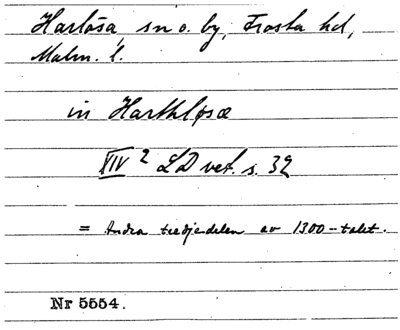 Harlösa, sn o. by, Frosta hd,
Malm. l.
in Harthløsæ
XIV 2 LD vet. s. 32
= Andra tredjedelen av 1300-talet.
Nr 5554.